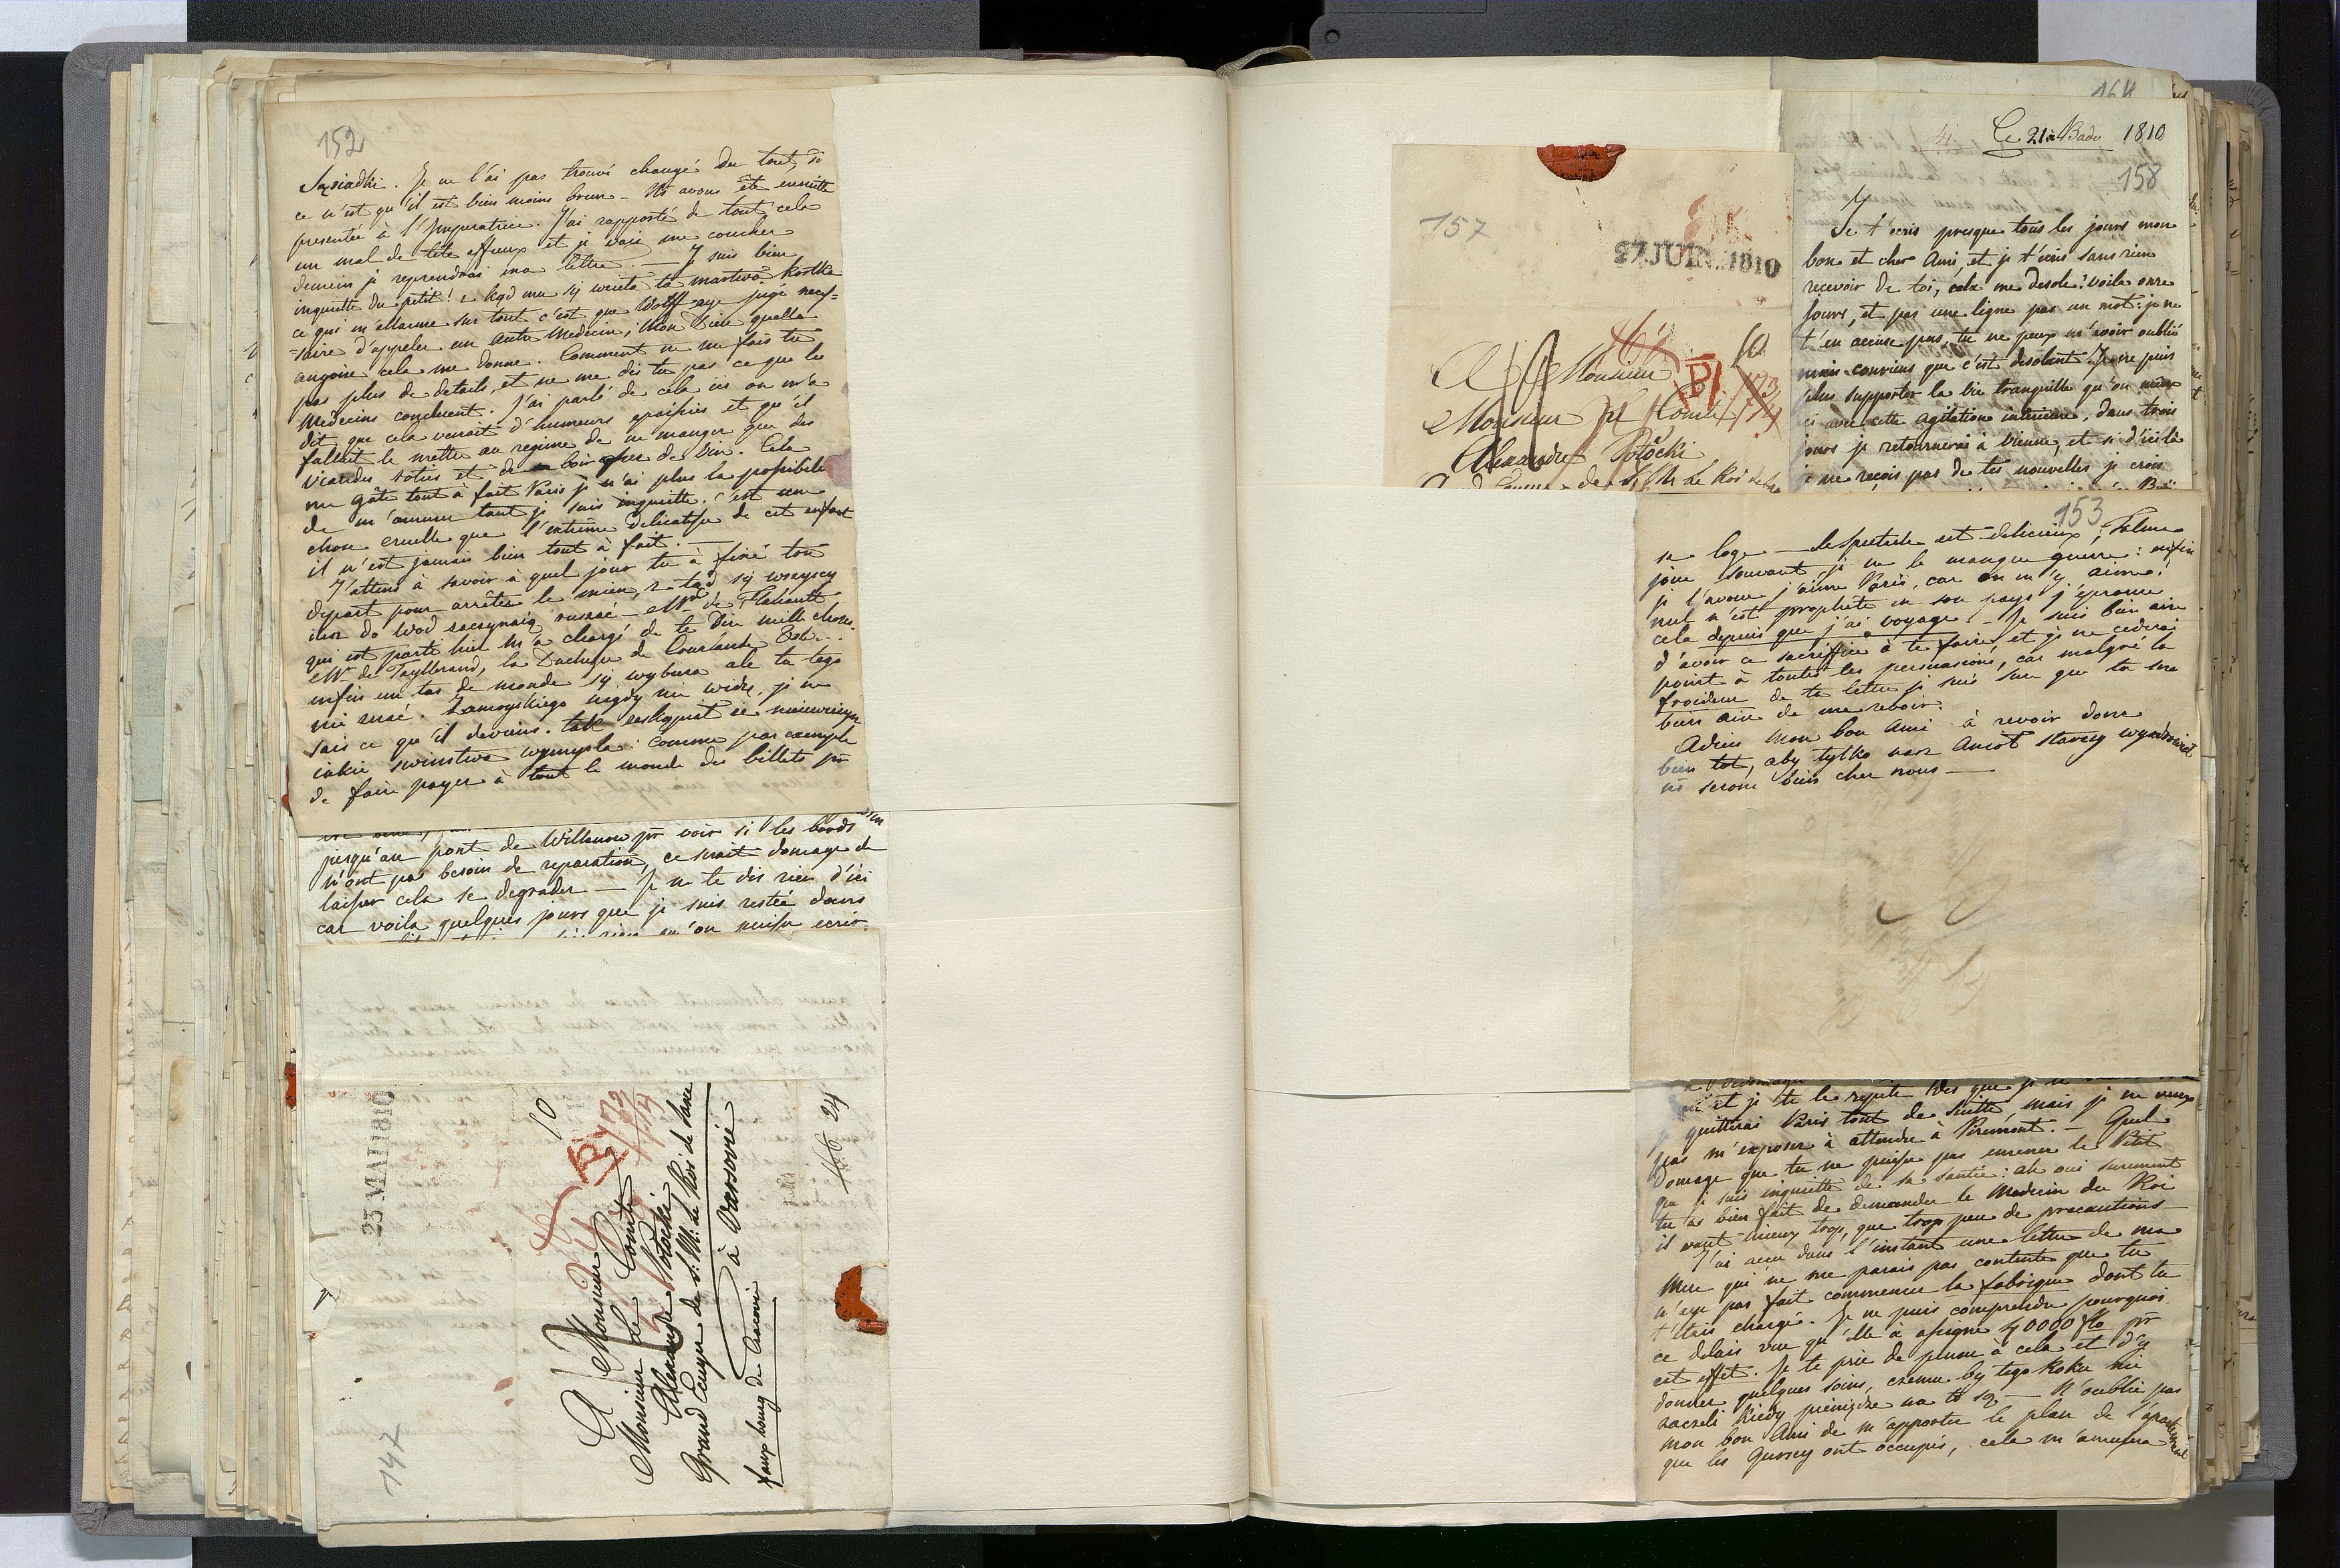 152
Sąsiadki. Je ne l'ai pas trouvé changé du tout, si
ce n'est qu'il est bien moins brun — Ns avons été ensuite
presentée à l'Imperatrice. J'ai rapporté de tout cela
un mal de tête affreux et je vais me coucher
demain je reprendrai ma lettre — Je suis bien
inquiette du petit! skąd mu się wzieła ta martwa kostka
ce qui m'allarme sur tout c'est que Wolff aye jugé neces=
=saire d'appeler un autre Medecin; Mon Dieu quelle
angoise cela me donne. Comment ne me fais tu
pas plus de details, et ne me dis tu pas ce que les
Medecins concluent. J'ai parlé de cela ici on m'a
dit que cela venait d'humeurs epaissies et qu'il
fallait le mettre au regime de ne manger que des
viandes roties et de boir du vin. Cela
me gâte tout à fait Paris je n'ai plus la possibilité
de m'amuser tant je suis inquiette. C'est une
chose cruelle que l'extrême delicatesse de cet enfant
il n'est jamais bien tout à fait. —
J'attens à savoir à quel jour tu à fixé ton
depart pour arrêter le mien, stąd się wszyscy
do wod zaczynaią ruszać — Mr de Flahault
qui est parti hier m'a chargé de te dire mille choses.
Mr de Tayllerand, la Duchesse de Courlande
enfin un tas de monde się wybiera ale tu tego
nie znać. Zamoyskiego nigdy nie widzę, je ne
sais ce qu'il deviens. tak
iakie swinstwa wymysla: comme par exemple
de faire payer à tout le monde des billets pr
jusqu'au pont de Willanow pr voir si les bords
n'ont pas besoin de reparation, ce serait domage de
laisser cela se degrader — Je ne te dis rien d'ici
car voila quelques jours que je suis restée dans
23 MAI 1810
10
A Monsieur
Monsieur le Comte
Alexandre Potocki
Grand Ecuyer de S. M. le Roi de Saxe
à Varsovie
faux bourg de Cracovie
24
147
157
27 JUIN 1810
A Monsieur
Monsieur le Comte
Alexandre Potocki
de S. M. le Roi de
164
Ce 21 à Bade 1810
158
Je t'ecris presque tous les jours mon
bon et cher Ami et je t'ecris sans rien
recevoir de toi, cela me desole! voila onze
jours, et pas une ligne pas un mot: je ne
t'en accuse pas, tu ne peux m'avoir oublié
mais conviens que c'est desolant. Je ne puis
plus supporter la vie tranquille qu'on mène
ici avec cette agitation interieure, dans trois
jours je retournerai à Vienne, et si d'ici là
je ne reçois pas de tes nouvelles je crois
153
sa loge — le Spectacle est delicieux, Talma
joue souvent, je ne le manque guerre: enfin
je l'avoue j'aime Paris, car on m'y aime!
nul n'est prophète en son pays j'eprouve
cela depuis que j'ai voyagé. — Je suis bien aise
d'avoir ce sacrifice à te faire et je ne cederai
point à toutes les persuasions, car malgré la
froideur de ta lettre je suis sure que tu sera
bien aise de me revoir.
Adieu mon bon Ami à revoir donc
bien tot, aby tylko nasz Anioł starszy wyzdrowiał
ns serons bien cher nous —
et je te le repete dès que je
quitterai Paris tout de suitte, mais je ne veux
pas m'exposer à attendre à Piremont. — Quel
Domage que tu ne puisse pas emener le Petit
que je suis inquiette de sa santée: ah oui surement
tu as bien fait de demander le Medecin du Roi
il vaut mieux trop, que trop peu de precautions —
J'ai recu dans l'instant une lettre de ma
Mere qui ne me parais pas contente que tu
n'eye pas fait commencer la fabrique dont tu
t'étais chargé. Je ne puis comprendre pourquoi
ce delais vu qu'elle à assigné 40000 flo pr
cet effet. Je te prie de penser à cela et d'y
donner quelques soins, czemu by tego Roku nie
zaczeli kiedy pieniądze na to są — N'oublie pas
mon bon Ami de m'apporter le plan de l'apartement
que les Gurscy ont occupés, cela m'amusera